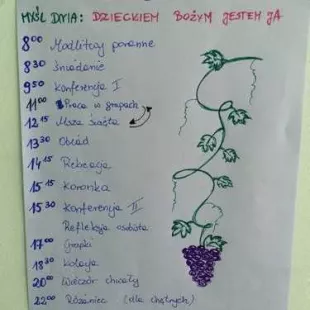 MYŚL DNIA: DZIECKIEM BOŻYM JESTEM JA
8⁰⁰ Modlitwy poranne
8³⁰ Śniadanie
9⁵⁰ Konferencja I
11⁰⁰ Praca w grupach
12¹⁵ Msza Święta
13³⁰ Obiad
14¹⁵ Rekreacja
15¹⁵ Koronka
15³⁰ Konferencja II
Refleksja osobista
17⁰⁰ Grupka
18³⁰ Kolacja
20⁰⁰ Wieczór chwały
22⁰⁰ Różaniec (dla chętnych)